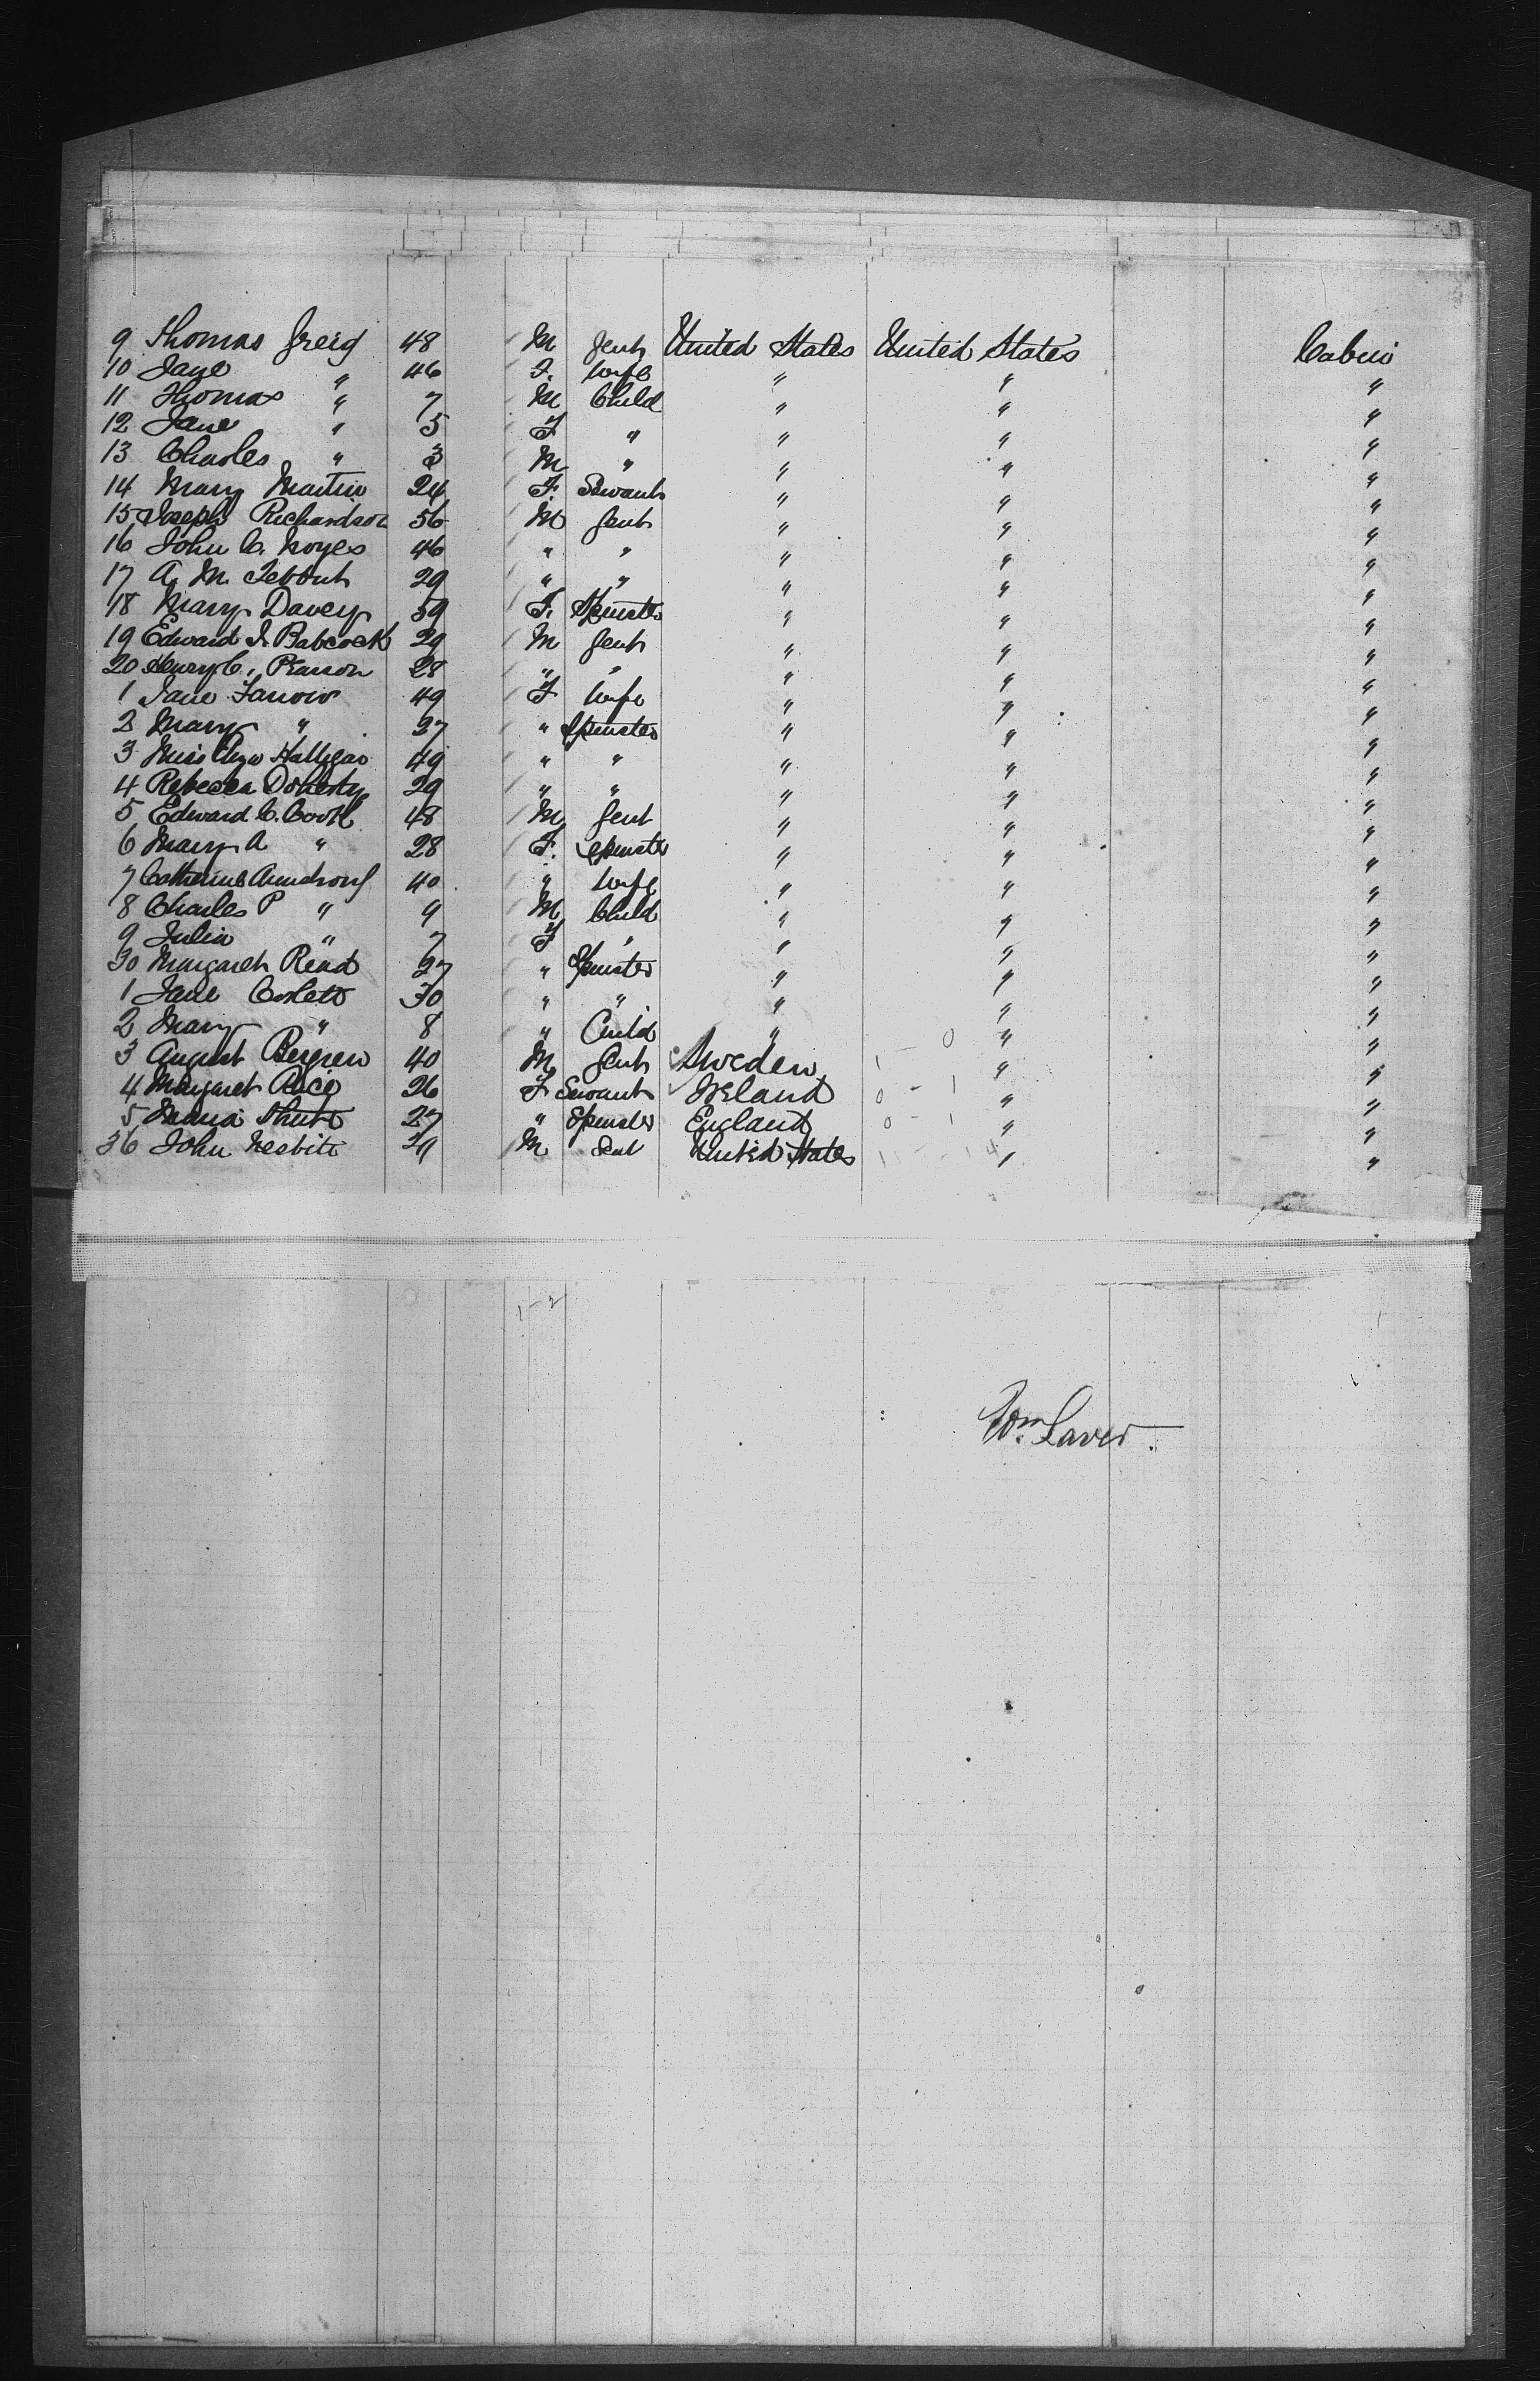 9 Thomas Greig 48 M Gent United States United States Cabin
10 Jane " 46 F. Wife " " "
11 Thomas " 7 M Child " " "
12 Jane " 5 F " " " "
13 Charles " 3 M " " " "
14 Mary Martin 24 F. Servant " " "
15 Joseph Richardson 56 M Gent " " "
16 John C. Noyes 46 " " " " "
17 A. M. Tebbut 29 " " " " "
18 Mary Davey 59 F. Spinster " " "
19 Edward I. Babcock 29 M Gent " " "
20 Henry C. Pearson 28 " " " " "
1 Jane Farrow 49 F Wife " " "
2 Mary " 37 " Spinster " " "
3 Miss Halligan 49 " " " " "
4 Rebecca Doherty 29 " " " " "
5 Edward C. Cook 48 M Gent " " "
6 Mary A " 28 F. Spinster " " "
7 Catherine Armstrong 40 " Wife " " "
8 Charles P " 9 M Child " " "
9 Julia " 7 F " " " "
30 Margaret Read 27 " Spinster " " "
1 Jane 30 " " " " "
2 Mary " 8 " Child " " "
3 August Bergren 40 M Gent Sweden 1 - 0 " "
4 Margaret Rice 26 F Servant Ireland 0 - 1 " "
5 Maria 27 " Spinster England 0 - 1 " "
36 John Nesbitt 29 M Gent United States " "
1-2
Wm Laver.